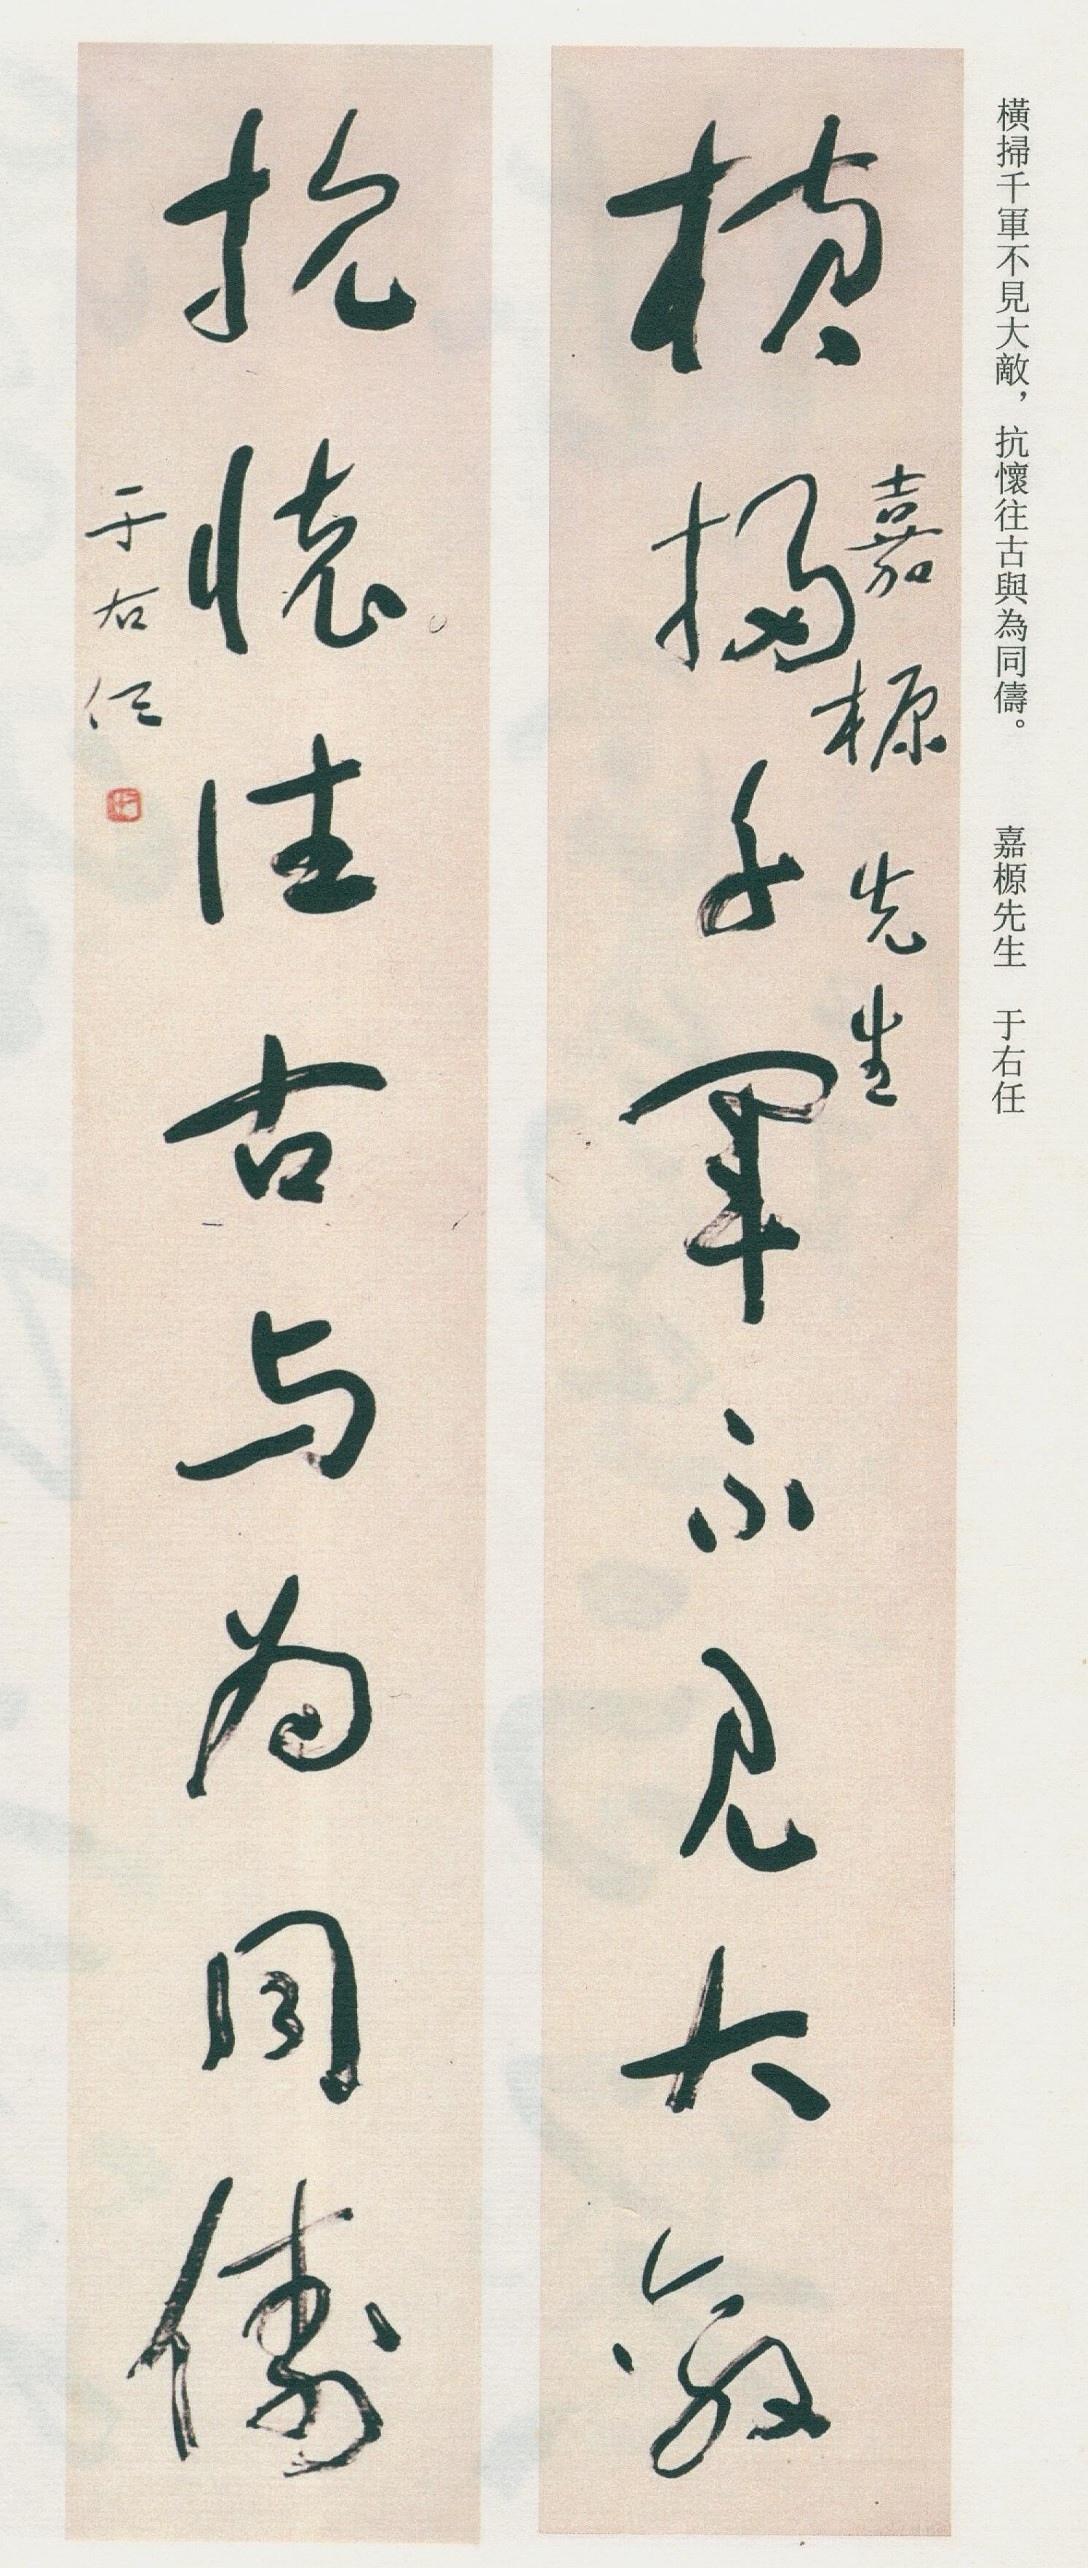 橫掃千軍不見大敵，抗懷往古與為同儔。　嘉榞先生　于右任
橫掃千軍不見大敵
嘉榞先生
抗懷往古与為同儔
于右任